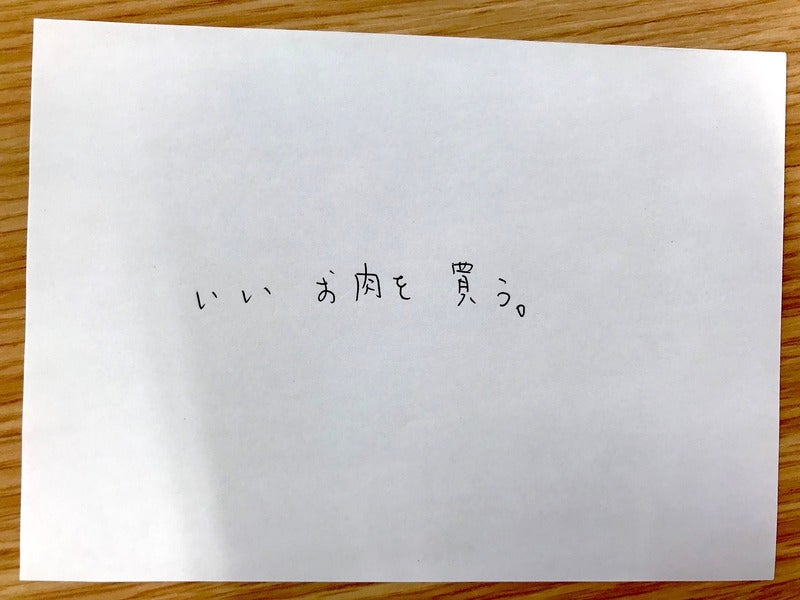 いい お肉を 買う。